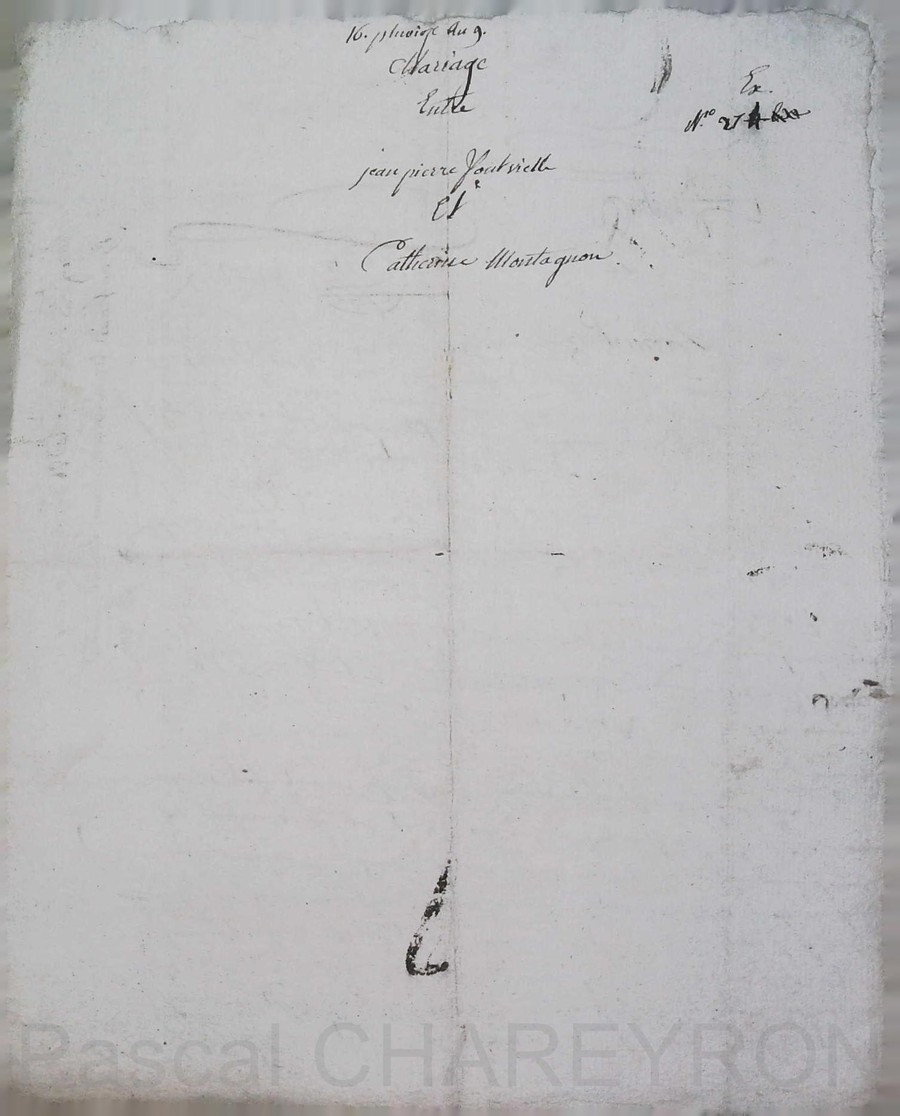 16. pluviose an 9.
Mariage
Entre
jean pierre Fontvielle
Et
Catherine Montagnon.
Ex.
N.º 27
Pascal CHAREYRON